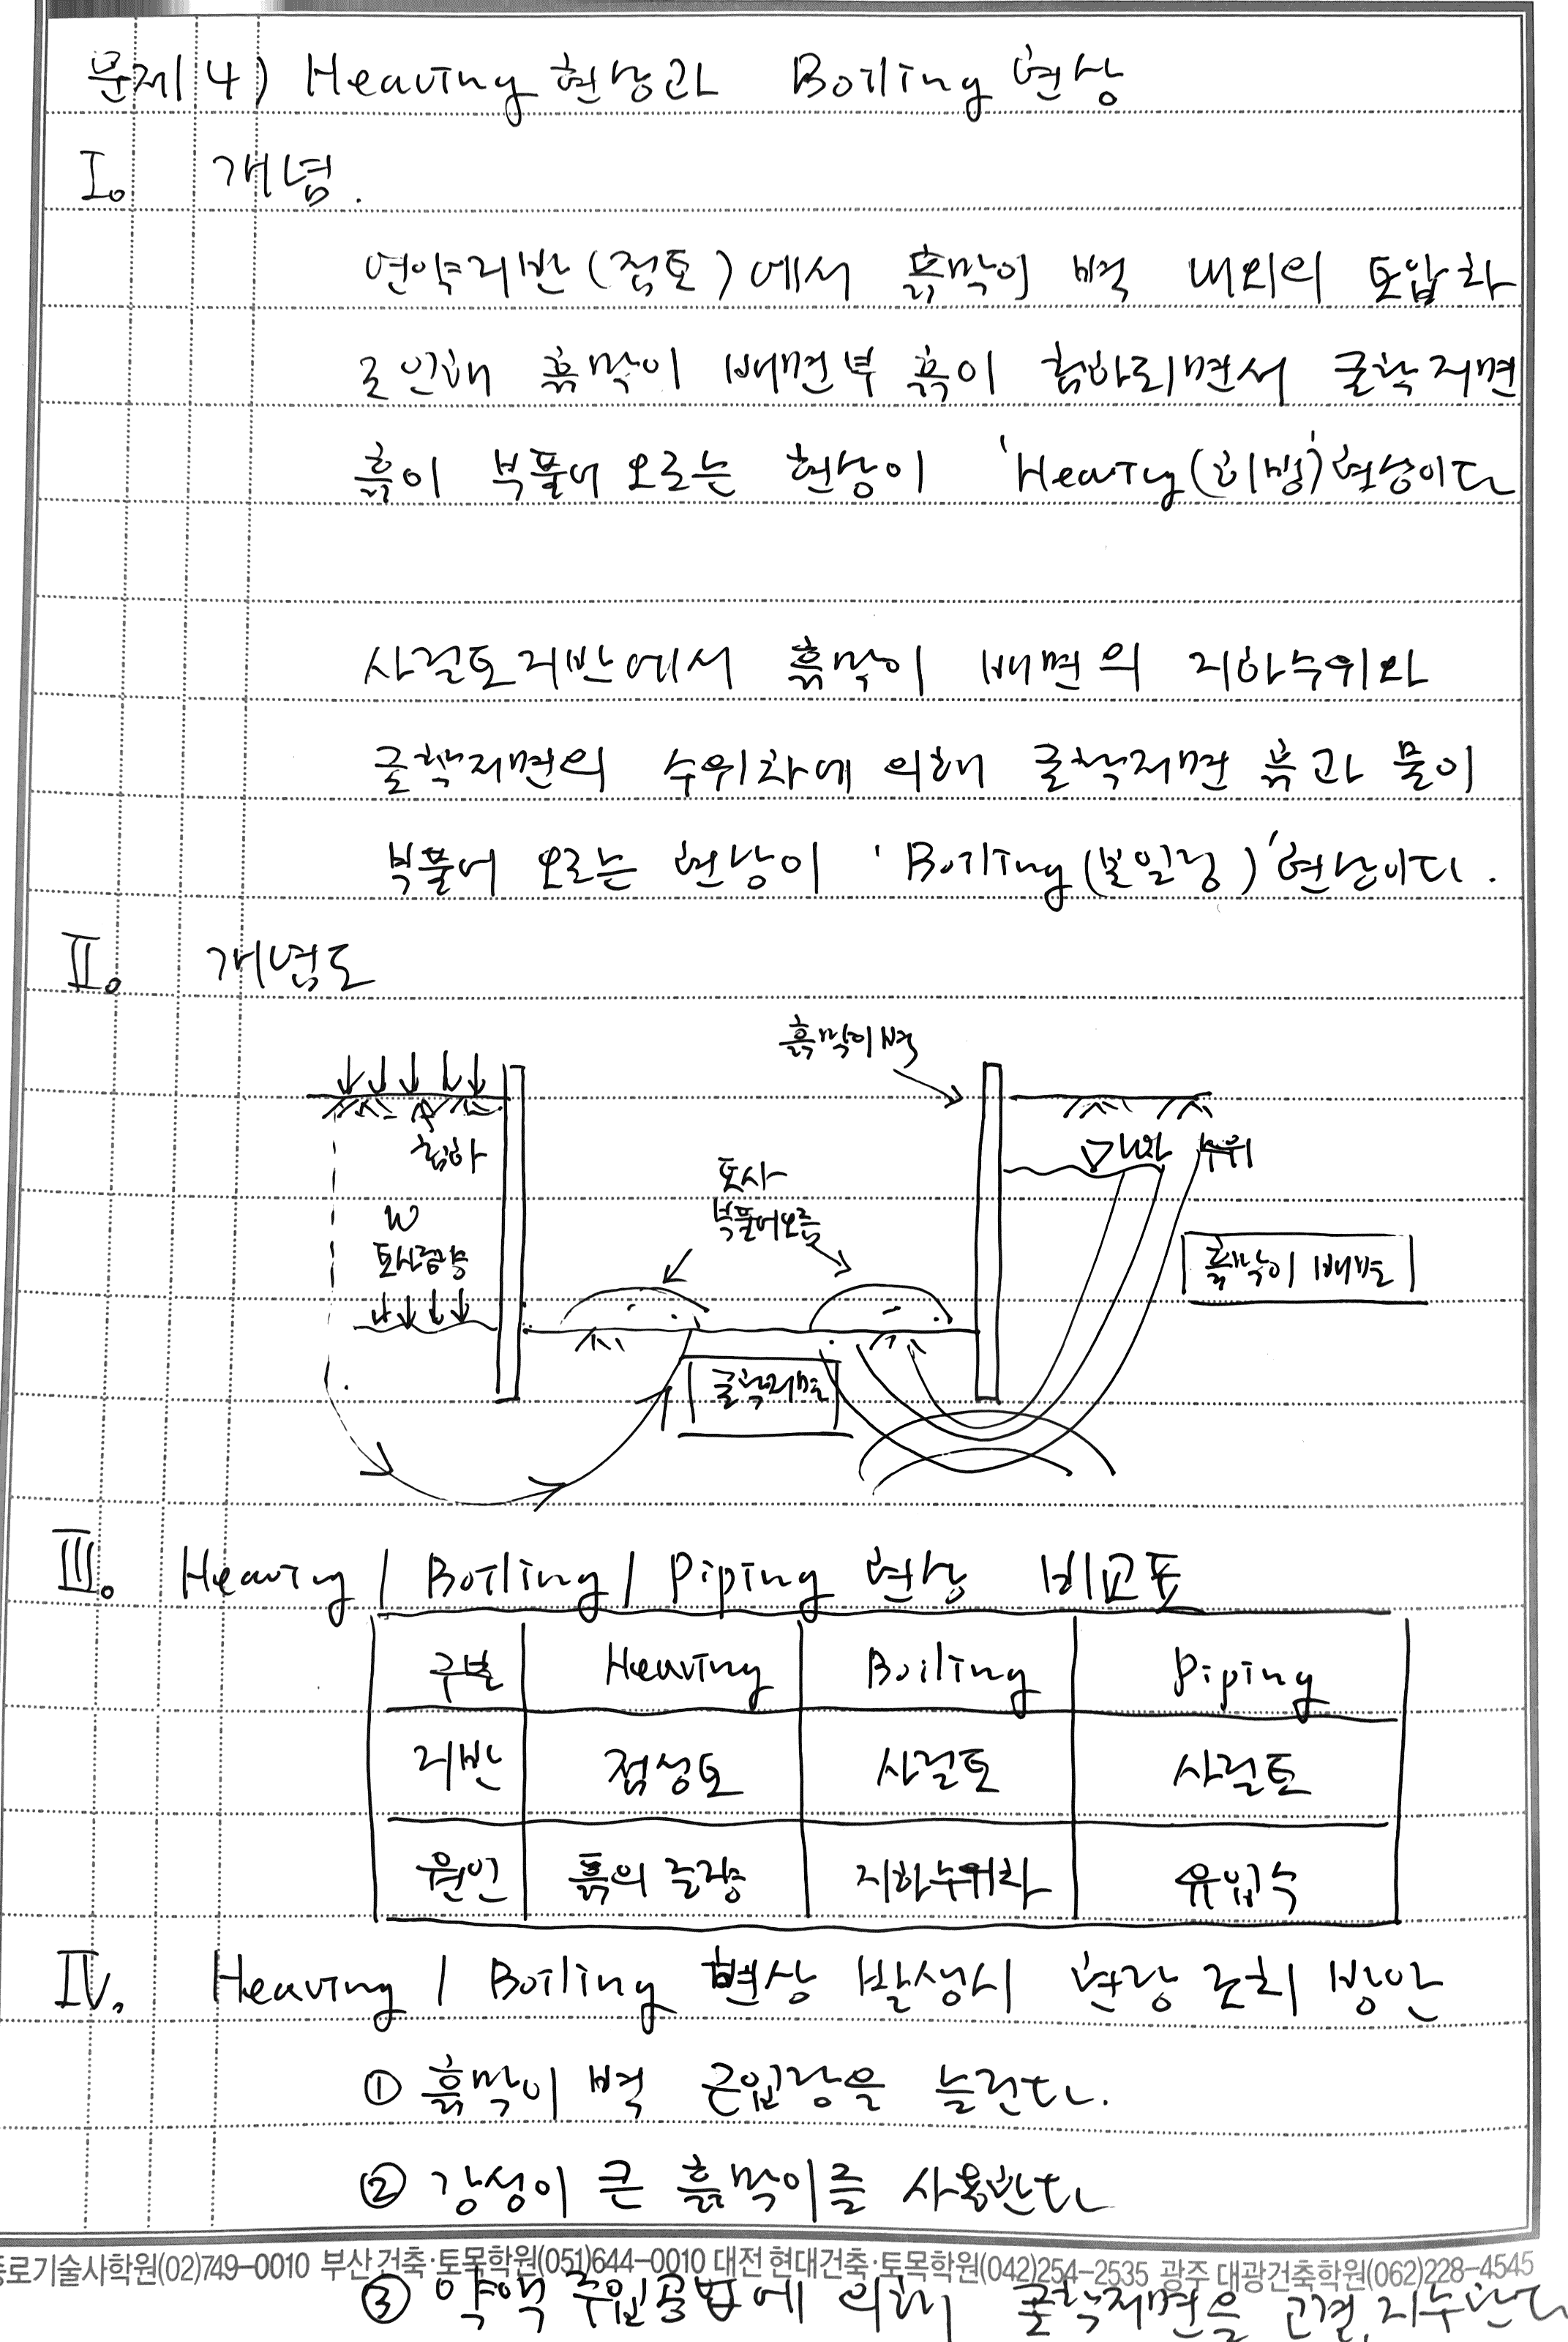 문제 4) Heaving 현상과 Boiling 현상
I. 개념.
연약지반(점토)에서 흙막이 벽 내외의 토압차
로 인해 흙막이 배면부 흙이 침하되면서 굴착저면
흙이 부풀어 오르는 현상이 'Heaving(히빙)'현상이다
사질토지반에서 흙막이 배면의 지하수위와
굴착저면의 수위차에 의해 굴착저면 흙과 물이
부풀어 오르는 현상이 'Boiling(보일링)'현상이다.
II. 개념도
흙막이벽
침하
수위
토사
부풀어오름
W
토사중량
흙막이 배면
굴착저면
III. Heaving / Boiling / Piping 현상 비교표
구분 Heaving Boiling Piping
지반 점성토 사질토 사질토
원인 흙의 중량 지하수위차 유입수
IV. Heaving / Boiling 현상 발생시 현장 조치 방안
① 흙막이 벽 근입장을 늘린다.
② 강성이 큰 흙막이를 사용한다
종로기술사학원(02)749-0010 부산건축·토목학원(051)644-0010 대전 현대건축·토목학원(042)254-2535 광주 대광건축학원(062)228-4545
③ 약액 주입공법에 의해 굴착저면을 고결, 지수한다